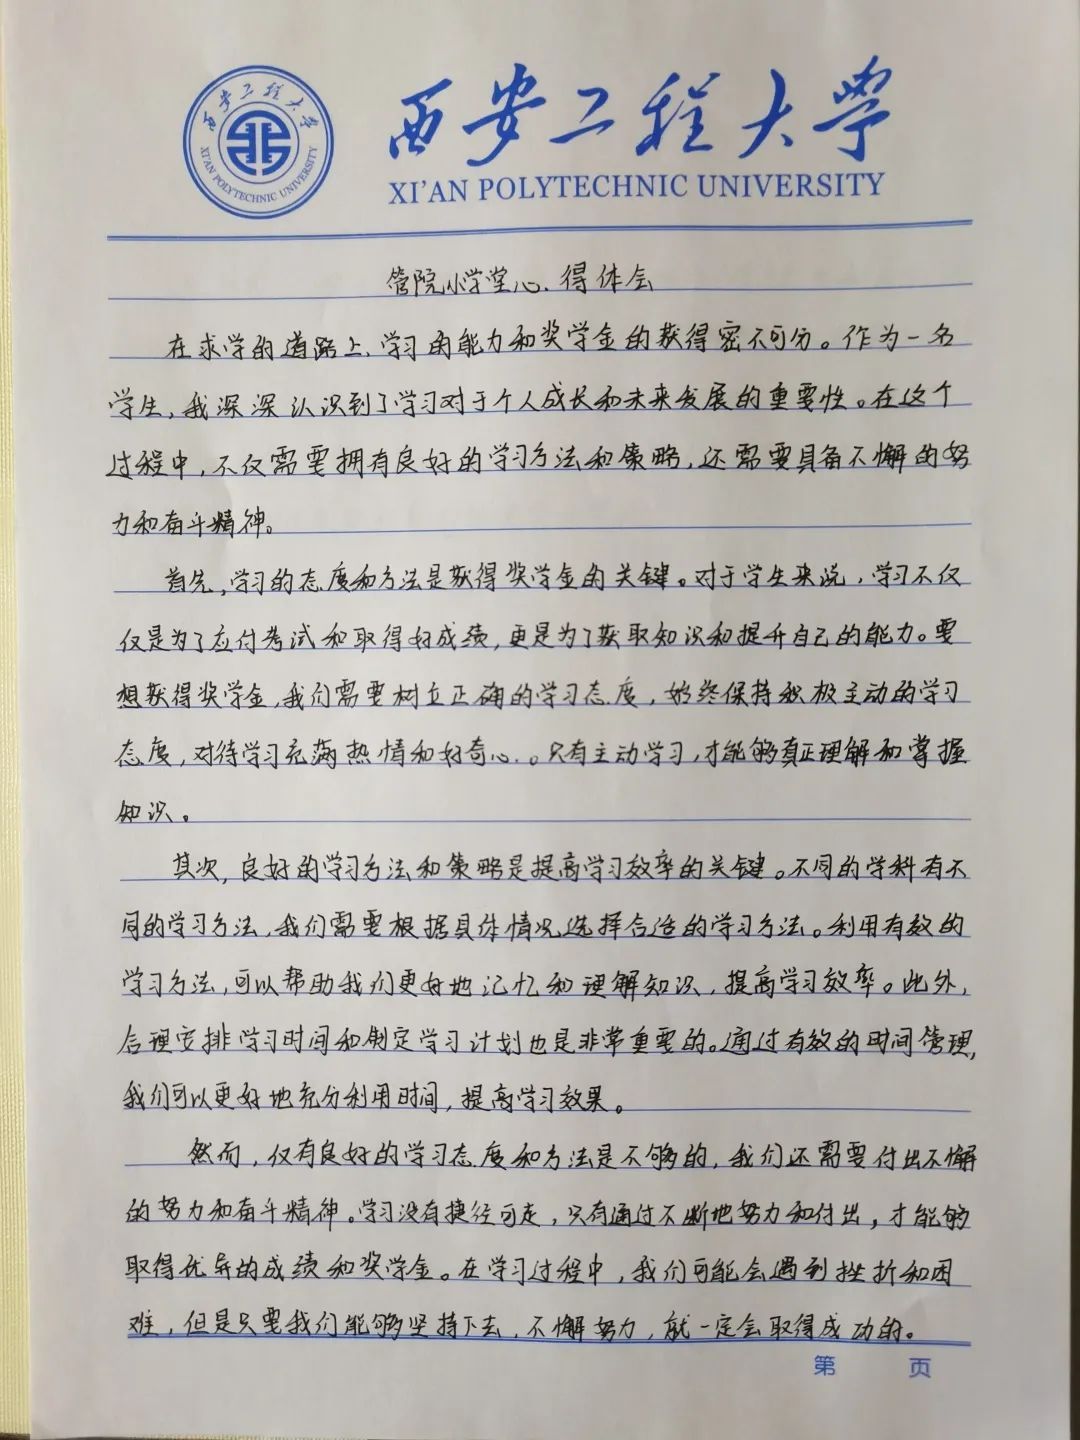 西安工程大学
XI'AN POLYTECHNIC UNIVERSITY
西安工程大学
XI'AN POLYTECHNIC UNIVERSITY
管院小学堂心得体会
在求学的道路上,学习的能力和奖学金的获得密不可分。作为一名
学生,我深深认识到了学习对于个人成长和未来发展的重要性。在这个
过程中,不仅需要拥有良好的学习方法和策略,还需要具备不懈的努
力和奋斗精神。
首先,学习的态度和方法是获得奖学金的关键。对于学生来说,学习不仅
仅是为了应付考试和取得好成绩,更是为了获取知识和提升自己的能力。要
想获得奖学金,我们需要树立正确的学习态度,始终保持积极主动的学习
态度,对待学习充满热情和好奇心。只有主动学习,才能够真正理解和掌握
知识。
其次,良好的学习方法和策略是提高学习效率的关键。不同的学科有不
同的学习方法,我们需要根据具体情况选择合适的学习方法。利用有效的
学习方法,可以帮助我们更好地记忆和理解知识,提高学习效率。此外,
合理安排学习时间和制定学习计划也是非常重要的。通过有效的时间管理,
我们可以更好地充分利用时间,提高学习效果。
然而,仅有良好的学习态度和方法是不够的,我们还需要付出不懈
的努力和奋斗精神。学习没有捷径可走,只有通过不断地努力和付出,才能够
取得优异的成绩和奖学金。在学习过程中,我们可能会遇到挫折和困
难,但是只要我们能够坚持下去,不懈努力,就一定会取得成功的。
第 页